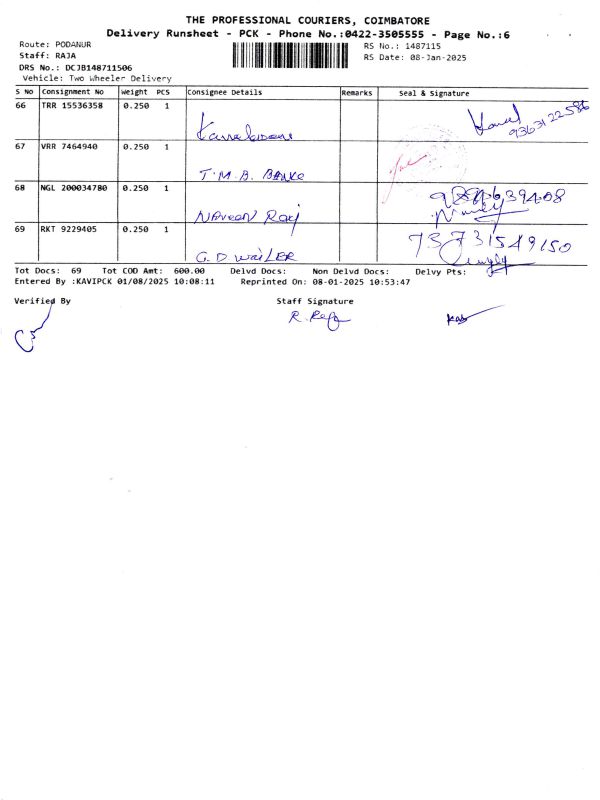 THE PROFESSIONAL COURIERS, COIMBATORE
Delivery Runsheet - PCK - Phone No.:0422-3505555 - Page No.:6
Route: PODANUR
Staff: RAJA
DRS No.: DCJB148711506
Vehicle: Two Wheeler Delivery
RS No.: 1487115
RS Date: 08-Jan-2025
S No Consignment No Weight PCS Consignee Details Remarks Seal & Signature
66 TRR 15536358 0.250 1
9363122586
67 VRR 7464940 0.250 1
T.M.B. BANK
68 NGL 200034780 0.250 1
NAVEEN RAJ
69 RKT 9229405 0.250 1 73731549150
G.D WAILER
Tot Docs: 69 Tot COD Amt: 600.00 Delvd Docs: Non Delvd Docs: Delvy Pts:
Entered By :KAVIPCK 01/08/2025 10:08:11 Reprinted On: 08-01-2025 10:53:47
Verified By Staff Signature
R. Raja